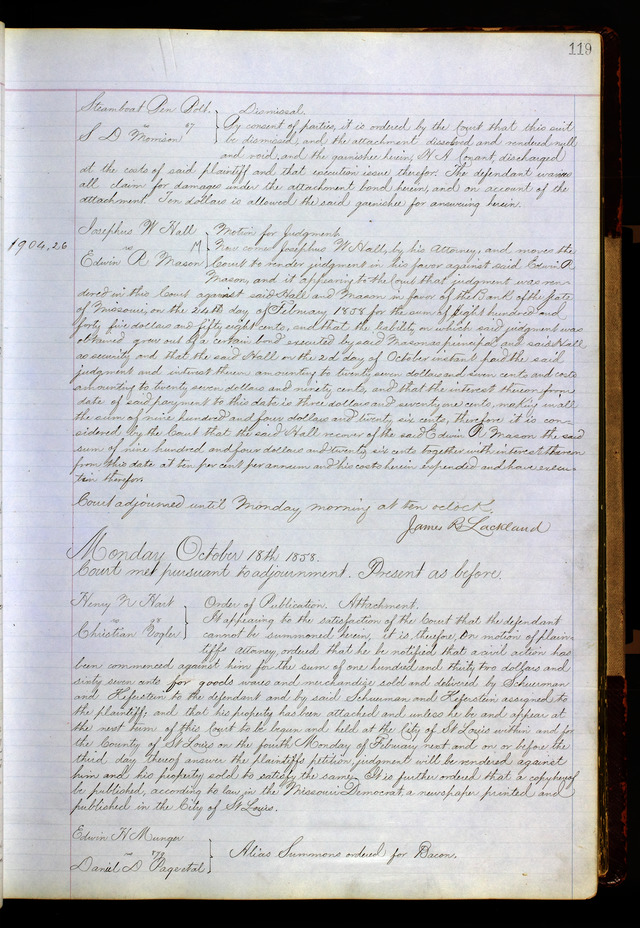 119
Steamboat Ben Bolt. } Dismissal.
vs 87 By consent of parties, it is ordered by the Court that this suit
S D Morrison be dismissed, and the attachment dissolved and rendered null
and void, and the garnishee herein, N. A. Conant, discharged
at the costs of said plaintiff and that execution issue therefor. The defendant waives
all claim for damages under the attachment bond herein, and on account of the
attachment. Ten dollars is allowed the said garnishee for answering herein.
Josephus W Hall } Motion for Judgment.
1904,26
vs 17 Now comes Josephus W Hall, by his Attorney, and moves the
Edwin R Mason Court to render judgment in his favor against said Edwin R
Mason, and it appearing to the Court that judgment was ren-
dered in this Court against said Hall and Mason in favor of the Bank of the State
of Missouri, on the 24th day of February 1858 for the sum of Eight hundred and
forty five dollars and fifty eight cents, and that the liability on which said judgment was
obtained grew out of a certain bond executed by said Mason as principal and said Hall
as security and that the said Hall on the 2d day of October instant paid the said
judgment and interest thereon amounting to twenty seven dollars and seven cents and costs
amounting to twenty seven dollars and ninety cents, and that the interest thereon from
date of said payment to this date is three dollars and seventy one cents, making in all
the sum of nine hundred and four dollars and twenty six cents, therefore it is con-
sidered by the Court that the said Hall recover of the said Edwin R Mason the said
sum of nine hundred and four dollars and twenty six cents together with interest thereon
from this date at ten per cent per annum and his costs herein expended and have execu-
tion therefor.
Court adjourned until Monday morning at ten oclock.
James R Lackland
Monday October 18th 1858.
Court met pursuant to adjournment. Present as before.
Henry N Hart } Order of Publication. Attachment.
vs 98 It appearing to the satisfaction of the Court that the defendant
Christian Vogler cannot be summoned herein, it is therefore, on motion of plain-
tiffs attorney, ordered that he be notified that a civil action has
been commenced against him for the sum of one hundred and thirty two dollars and
sixty seven cents for goods wares and merchandize sold and delivered by Schurman
and Heferstein to the defendant and by said Schurman and Heferstein assigned to
the plaintiff; and that his property has been attached and unless he be and appear at
the next term of this Court to be begun and held at the City of St Louis within and for
the County of St Louis on the fourth Monday of February next and on or before the
third day thereof answer the plaintiffs petition, judgment will be rendered against
him and his property sold to satisfy the same. It is further ordered that a copy hereof
be published, according to law, in the Missouri Democrat, a newspaper printed and
published in the City of St Louis.
Edwin H Munger
vs } Alias Summons ordered for Bacon.
Daniel D Page et al